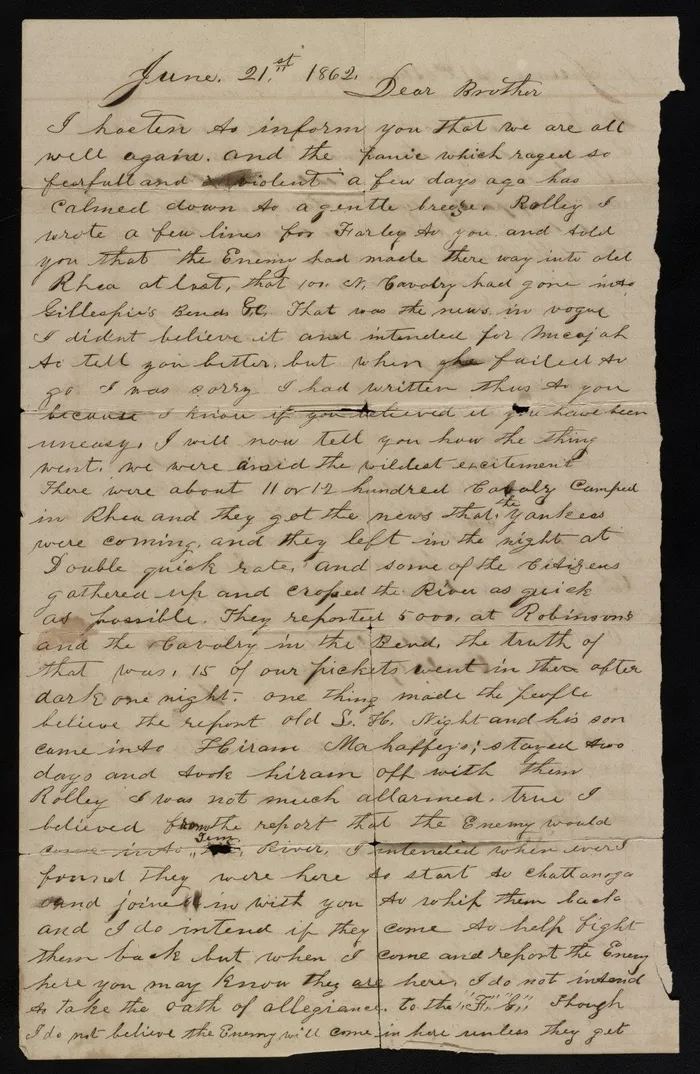 June. 21st, 1862.
Dear Brother
I hasten to inform you that we are all
well again. and the panic which raged so
fearfull and violent a few days ago has
Calmed down to a gentle breeze. Rolley I
wrote a few lines for Farley to you and told
you that the Enemy had made there way into old
Rhea at last, that 100. N. Cavalry had gone into
Gillespie's Bends &C. That was the news in vogue
I didnt believe it and intended for Micajah
to tell you better. but when he failed to
go I was sorry I had written thus to you
because I know if you believed it you have been
uneasy. I will now tell you how the thing
went. we were amid the wildest excitement
There were about 11 or 12 hundred Cavalry Camped
in Rhea and they got the news that the Yankees
were coming. and they left in the night at
Double quick rate. and some of the Citizens
gathered up and crossed the River as quick
as possible. They reported 5000. at Robinsons
and the Cavalry in the Bend. the truth of
that was. 15 of our pickets went in there after
dark one night. one thing made the people
believe the report old Night and his son
came into Hiram Mahaffeys; stayed two
days and took hiram off with them
Rolley I was not much allarmed. true I
believed from the report that the Enemy would
come into Tenn River. I intended when ever I
found they were here to start to Chattanoga
and joine in with you to whip them back
and I do intend if they come to help fight
them back but when I come and report the Enemy
here you may know they are here. I do not intend
to take the oath of allegiance. to the "F" "C" Though
I do not believe the Enemy will come in here unless they get